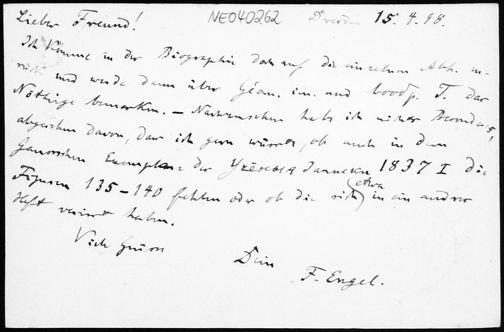 Lieber Freund! NE040262 Dresden 15.4.98.
Ich komme in der Biographie doch auf die einzelnen Abh. zu-
rück und werde dann über Géom. im. und T. das
Nöthige bemerken. –
abgesehen davon, dass ich gern wüsste, ob auch in dem
Exemplar der 1837 I die
Figuren 135–140 fehlen oder ob die sich (etwa) in ein andres
Heft verirrt haben.
Viele Grüsse
Dein
F. Engel.